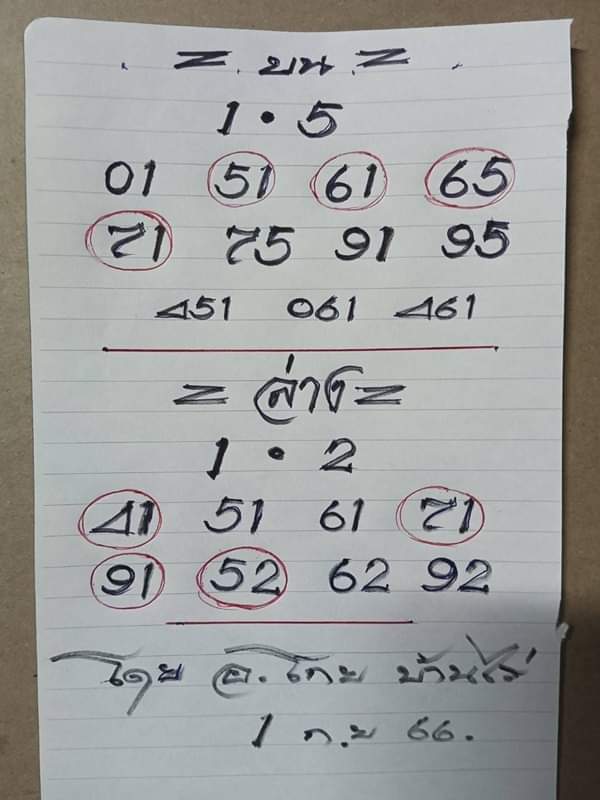 = บน =
1 • 5
01 51 61 65
71 75 91 95
451 061 461
= ล่าง =
1 • 2
41 51 61 71
91 52 62 92
โดย อ. โกย บ้านไร่
1 ก.ย 66.